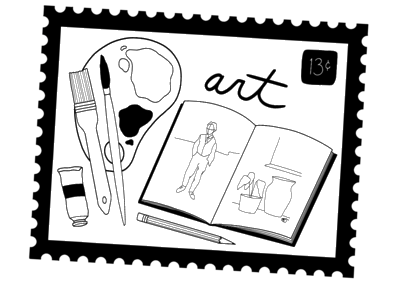 art
13¢